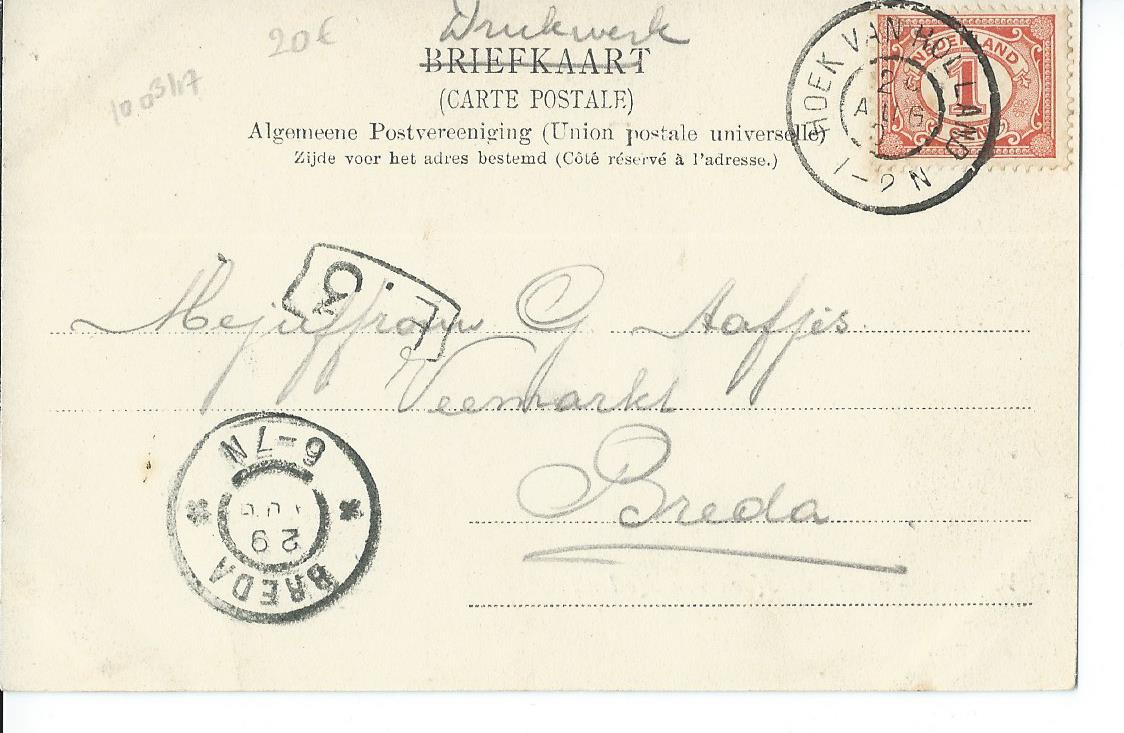 20€
10 03/17
Drukwerk
BRIEFKAART
(CARTE POSTALE)
Algemeene Postvereeniging (Union postale universelle)
Zijde voor het adres bestemd (Côté réservé à l'adresse.)
HOEK VAN HOLLAND
AUG
1-2N
NEDERLAND
1
CENT
Mejuffrouw G Aafjes
Veemarkt
Breda
6-7N
29
BREDA